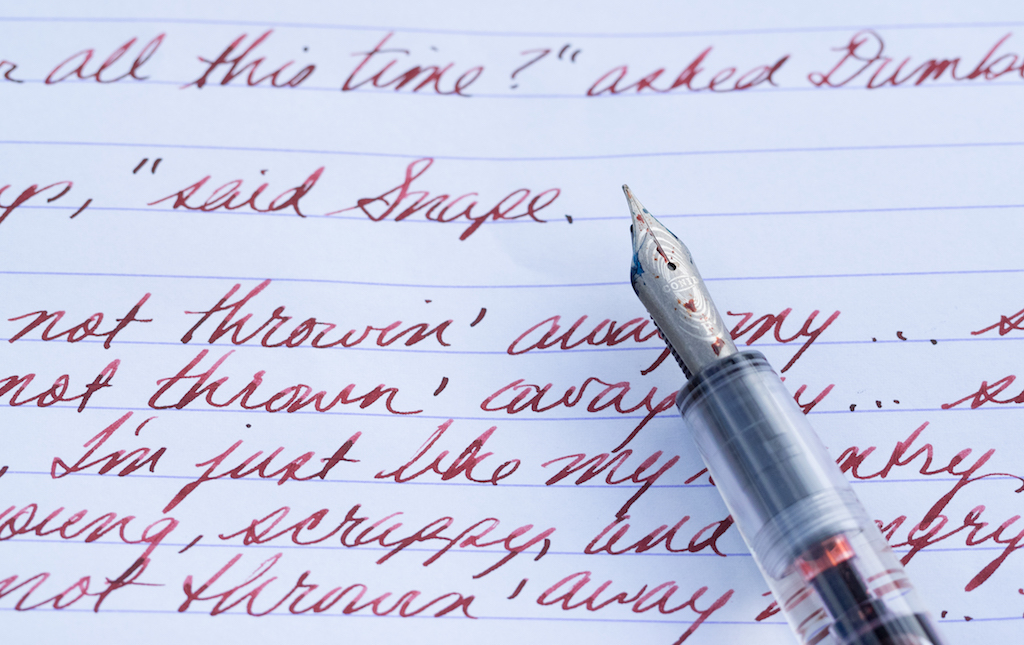 all this time?" asked Dumb
," said Snape.
not throwin' away my ...
not thrown' away my ...
, I'm just like my ntry
oung, scrappy, and ngry
not throwin' away ...